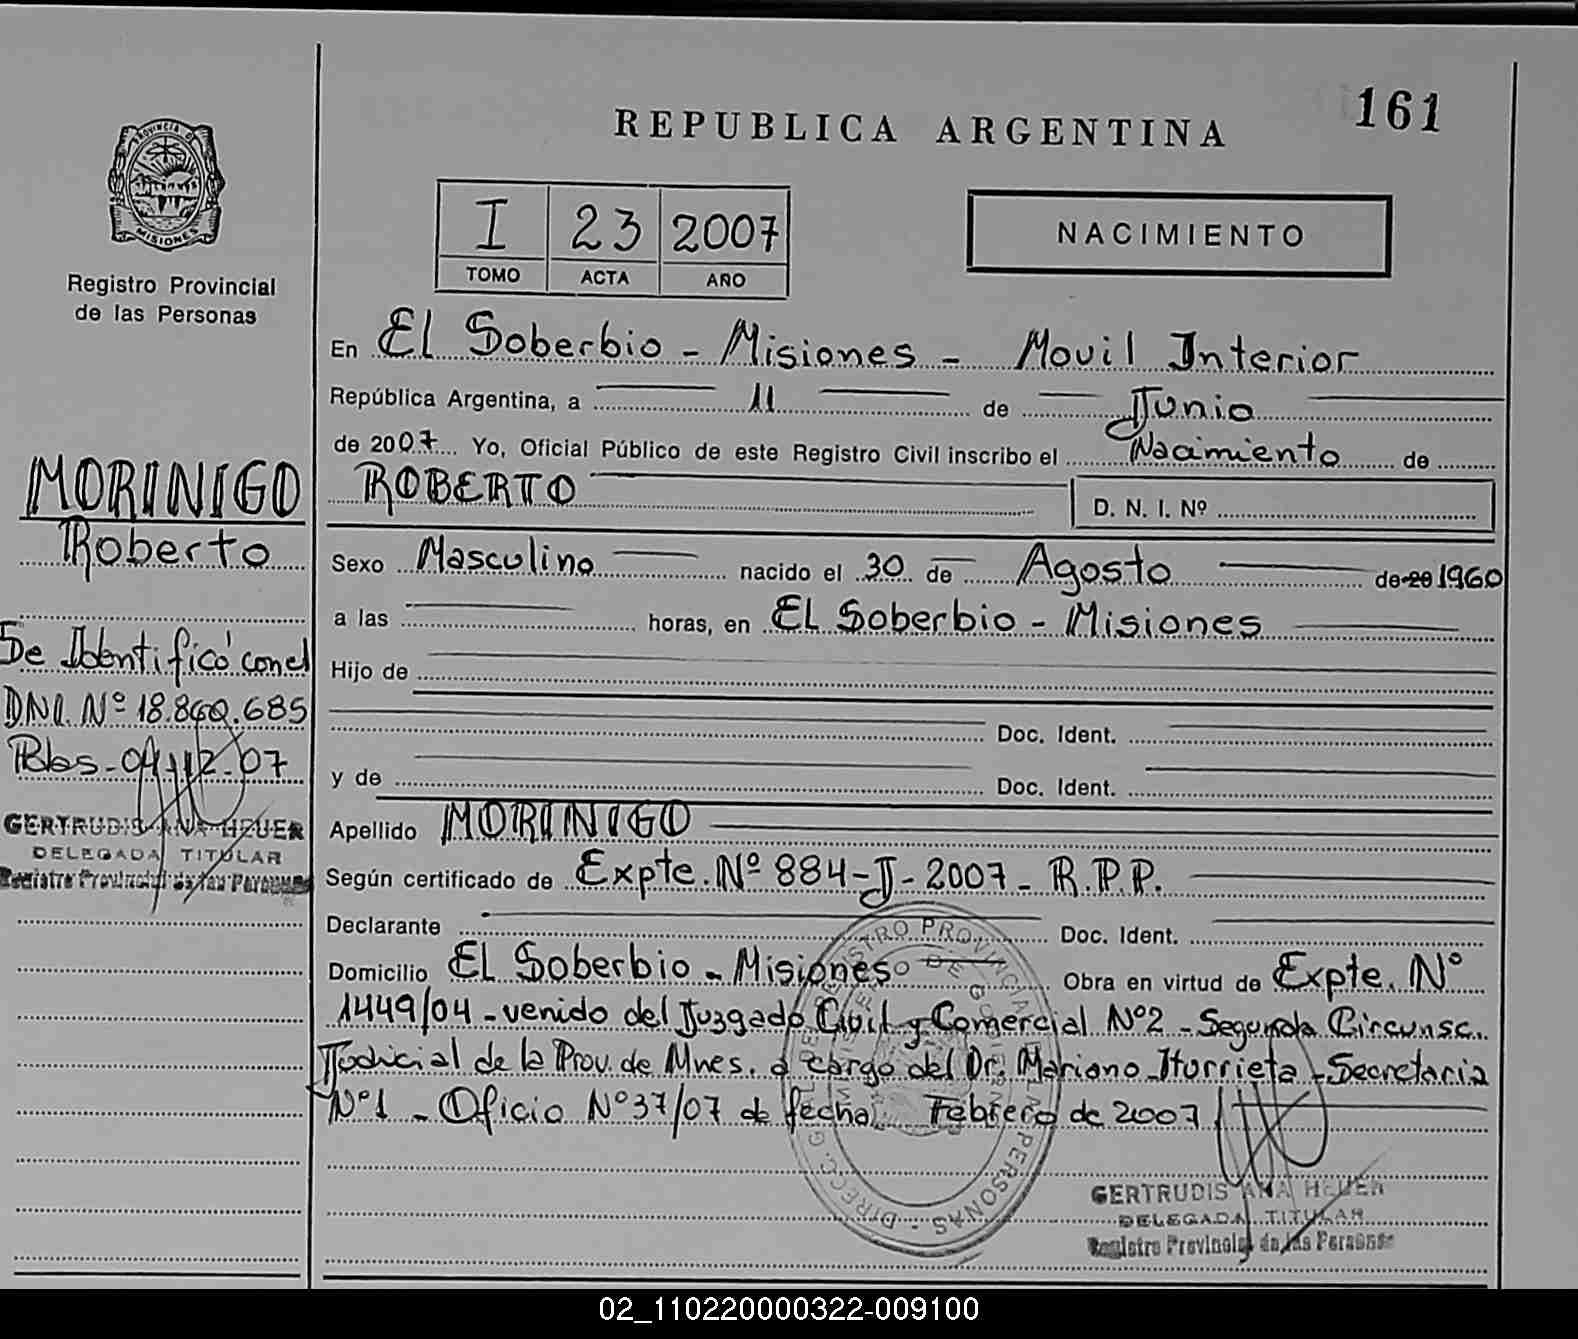 161
REPUBLICA ARGENTINA
PROVINCIA DE
MISIONES
Registro Provincial
de las Personas
I 23 2007
TOMO ACTA AÑO
NACIMIENTO
En El Soberbio - Misiones - Movil Interior
República Argentina, a 11 de Junio
de 2007 Yo, Oficial Público de este Registro Civil inscribo el Nacimiento de
ROBERTO D. N. I. Nº
Sexo Masculino nacido el 30 de Agosto de 20 1960
a las horas, en El Soberbio - Misiones
Hijo de
Doc. Ident.
y de Doc. Ident.
Apellido MORINIGO
Según certificado de Expte. Nº 884-J-2007 - R.P.P.
Declarante Doc. Ident.
Domicilio El Soberbio - Misiones Obra en virtud de Expte. Nº
1449/04 - venido del Juzgado Civil y Comercial Nº2 - Segunda Circunsc.
Judicial de la Prov. de Mnes. a cargo del Dr. Mariano Iturrieta - Secretaria
Nº1 - Oficio Nº37/07 de fecha Febrero de 2007
GERTRUDIS ANA HEUER
DELEGADA TITULAR
Registro Provincial de las Personas
MORINIGO
Roberto
Se Identificó con el
DNI. Nº 18.860.685
12-07
GERTRUDIS ANA HEUER
DELEGADA TITULAR
Registro Provincial de las Personas
02_110220000322-009100